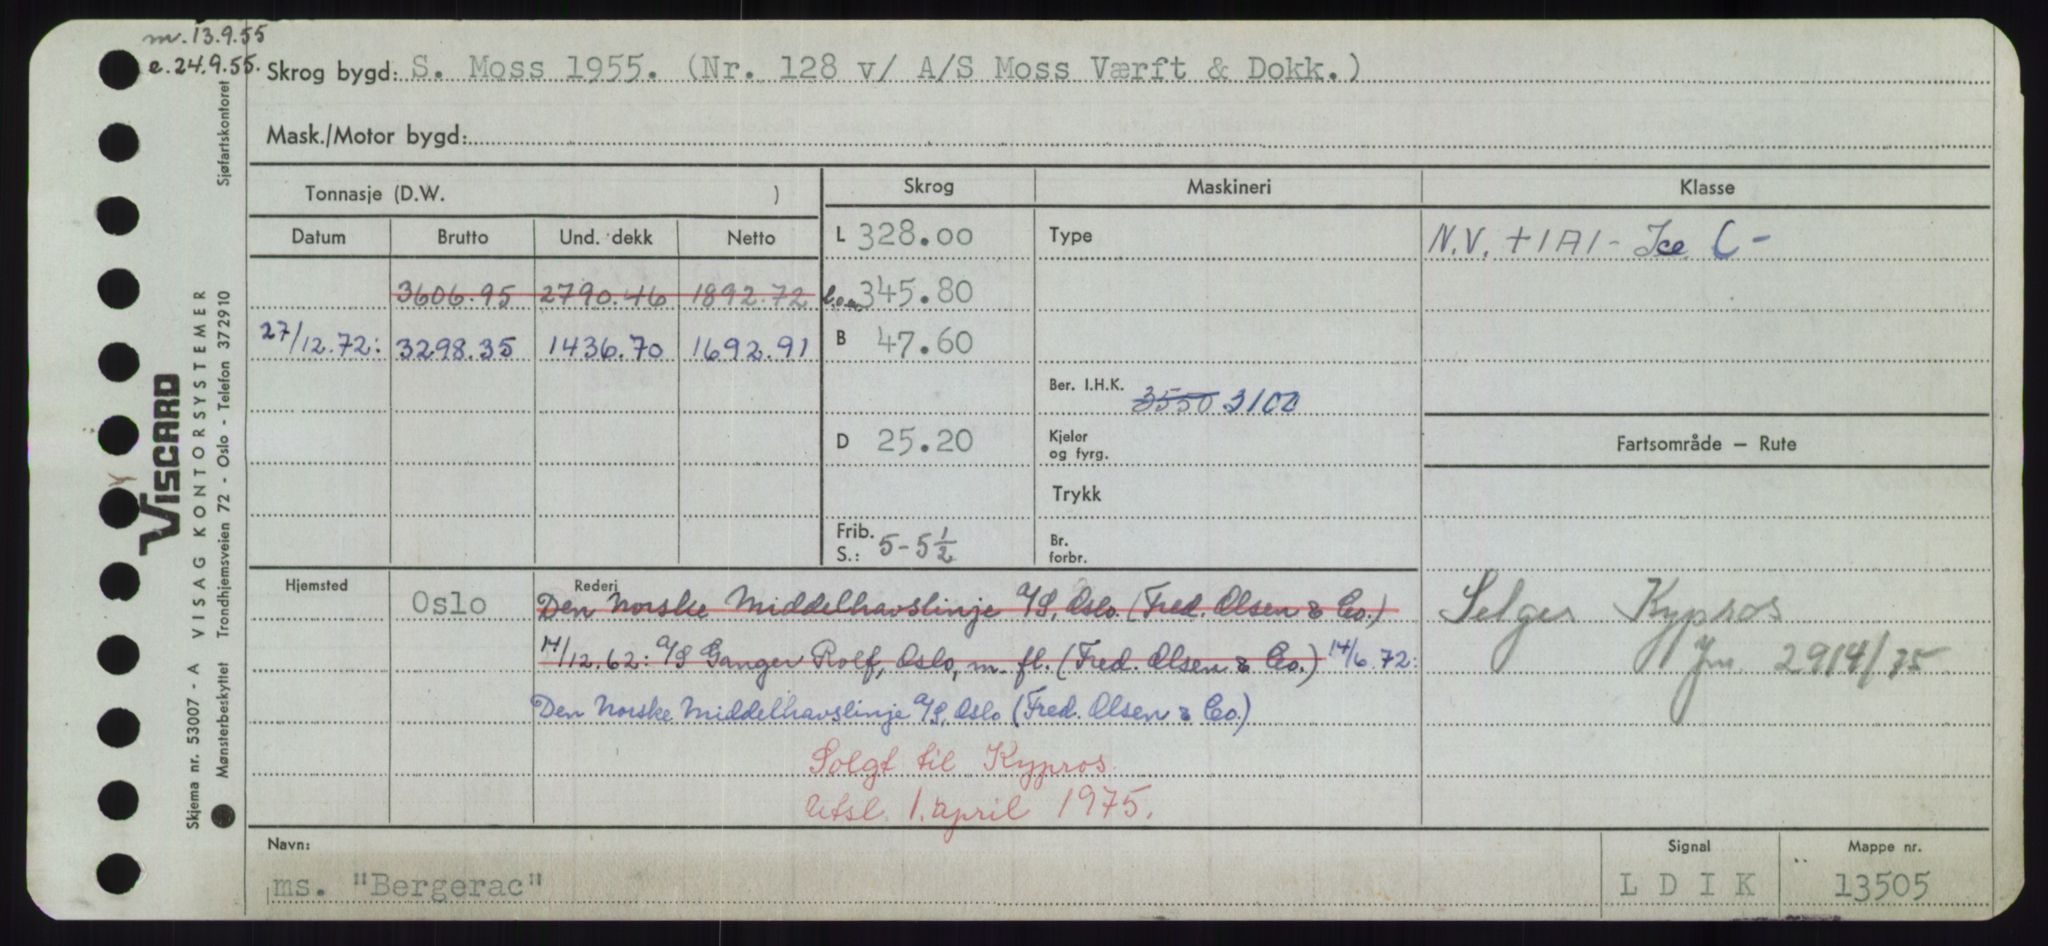 m. 13.9.55
e. 24.9.55.
Skrog bygd: S. Moss 1955. (Nr. 128 v/ A/S Moss Værft & Dokk.)
Mask./Motor bygd:
Tonnasje (D.W. )
Skrog
Maskineri
Klasse
Datum Brutto Und. dekk Netto
L 328.00
Type
N.V. + 1A1 - Ice C -
3606.95 2790.46 1892.72
l.o.a. 345.80
27/12.72: 3298.35 1436.70 1692.91
B 47.60
Ber. I.H.K. 3550 3100
D 25.20
Kjeler
og fyrg.
Fartsområde — Rute
Trykk
Frib.
S.: 5-5½
Br.
forbr.
Hjemsted
Oslo
Rederi
Den Norske Middelhavslinje A/S, Oslo (Fred. Olsen & Co.)
14/12.62: A/S Ganger Rolf, Oslo, m. fl. (Fred. Olsen & Co.) 14/6.72:
Den Norske Middelhavslinje A/S, Oslo (Fred. Olsen & Co.)
Solgt til Kypros
Utsl. 1. april 1975.
Selges Kypros
2914/75
Navn:
ms. "Bergerac"
Signal
LDIK
Mappe nr.
13505
VISCARD
Skjema nr. 53007 - A VISAG KONTORSYSTEMER
Mønsterbeskyttet Trondhjemsveien 72 - Oslo - Telefon 372910
Sjøfartskontoret